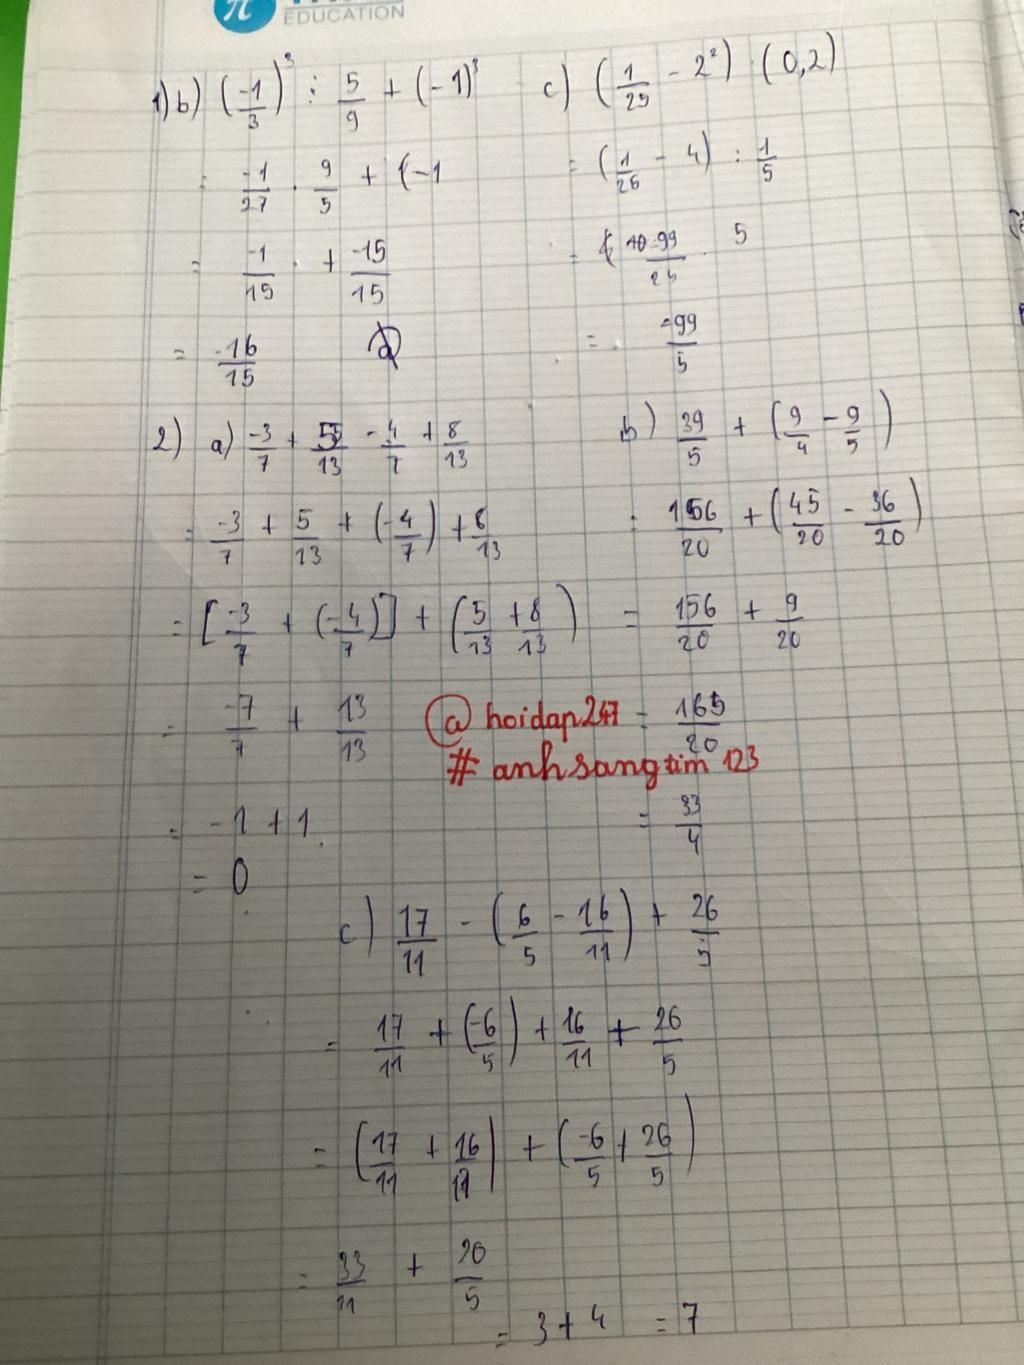 EDUCATION
1) b) (-1/3)³ : 5/9 + (-1)³
= -1/27 . 9/5 + (-1
= -1/15 . + -15/15
= -16/15
c) (1/25 - 2²) : (0,2)
= (1/25 - 4) : 1/5
= -99/25 . 5
= -99/5
2) a) -3/7 + 5/13 - 4/7 + 8/13
= -3/7 + 5/13 + (-4/7) + 8/13
= [-3/7 + (-4/7)] + (5/13 + 8/13)
= -7/7 + 13/13
= -1 + 1
= 0
b) 39/5 + (9/4 - 9/5)
= 156/20 + (45/20 - 36/20)
= 156/20 + 9/20
= 165/20
= 33/4
@ hoidap247
# anhsangtim 123
c) 17/11 - (6/5 - 16/11) + 26/5
= 17/11 + (-6/5) + 16/11 + 26/5
= (17/11 + 16/11) + (-6/5 + 26/5)
= 33/11 + 20/5
= 3 + 4 = 7